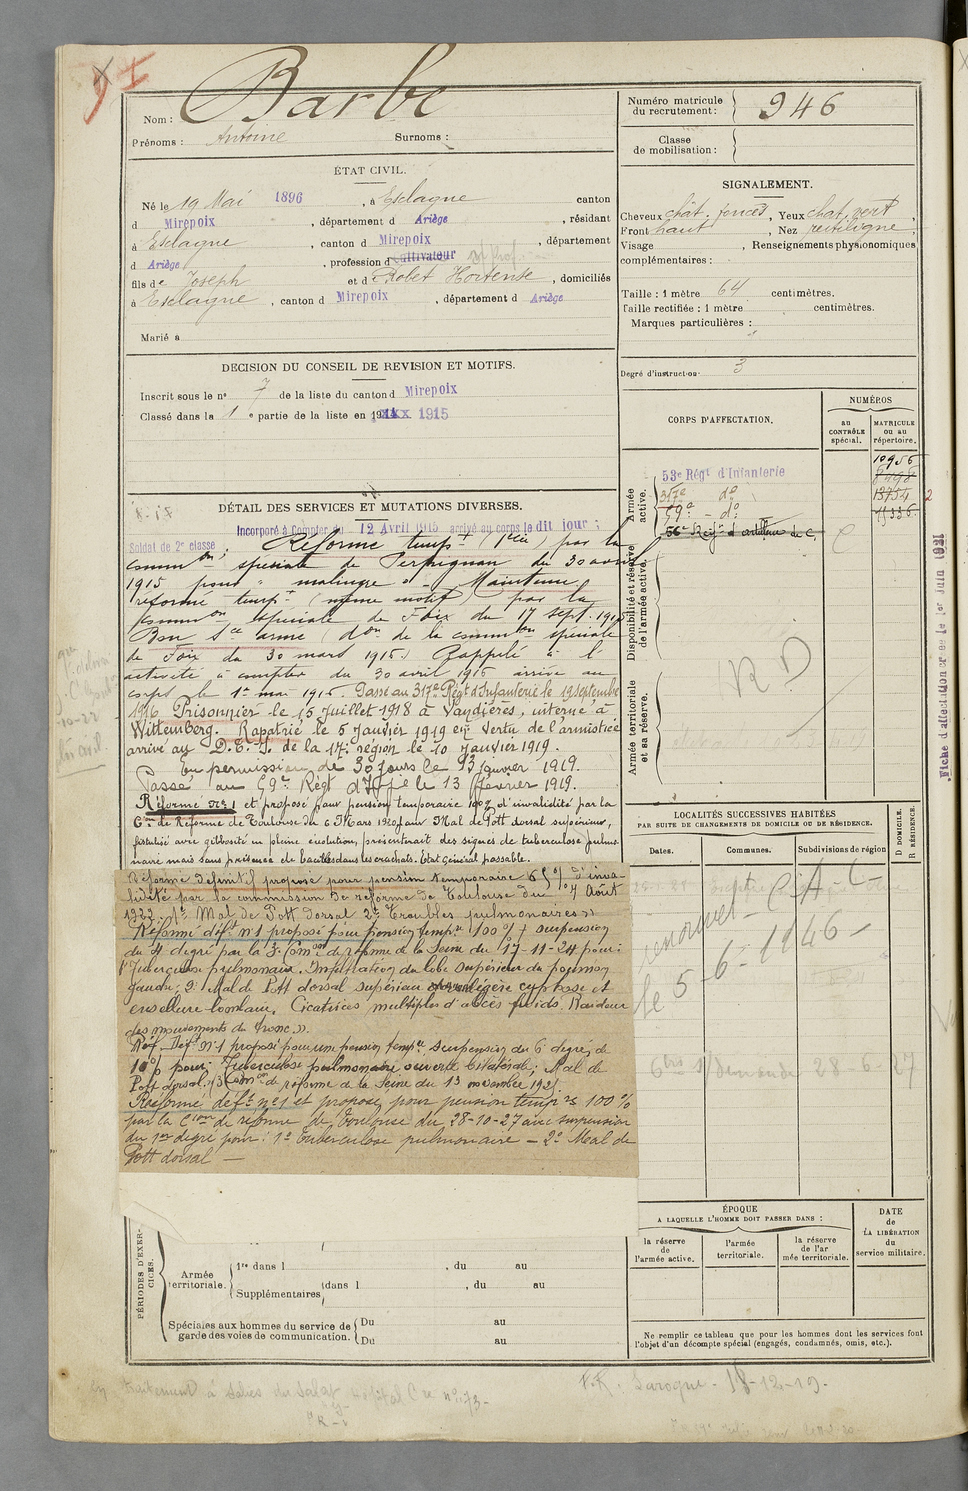 Nom : Barbe
Prénoms : Antoine Surnoms :
Numéro matricule du recrutement : 946
Classe de mobilisation :
ÉTAT CIVIL.
Né le 19 Mai 1896, à Esclagne canton
d Mirepoix, département d Ariège, résidant
à Esclagne, canton d Mirepoix, département
d Ariège, profession d cultivateur
fils de Joseph et d Robet Hortense, domiciliés
à Esclagne, canton d Mirepoix, département d Ariège
Marié à
SIGNALEMENT.
Cheveux chât. foncés, Yeux chat. vert,
Front haut Nez rectiligne,
Visage , Renseignements physionomiques
complémentaires :
Taille : 1 mètre 64 centimètres.
Taille rectifiée : 1 mètre centimètres.
Marques particulières :
Degré d'instruction 3
DECISION DU CONSEIL DE REVISION ET MOTIFS.
Inscrit sous le n° 7 de la liste du canton d Mirepoix
Classé dans la 1e partie de la liste en 1915
CORPS D'AFFECTATION.
NUMÉROS
au CONTRÔLE spécial.
MATRICULE ou au répertoire.
Armée active.
53e Régt d'Infanterie 10956
317e do 13754
59e - do 11336
Disponibilité et réserve de l'armée active.
Armée territoriale et sa réserve.
RD
Fiche d'affectation créée le 1er Juin 1921
DÉTAIL DES SERVICES ET MUTATIONS DIVERSES.
Incorporé à Compter du 12 Avril 1915 arrivé au corps le dit jour ;
Soldat de 2e classe ; Réformé tempt (1ère) par la
common spéciale de Perpignan du 30 avril
1915 pour " malingre " - Maintenu
réformé tempt (même motif) par la
Common spéciale de Foix du 17 sept. 1915
Bon sce armé (don de la common spéciale
de Foix du 30 mars 1916.) Rappelé à l'
activité à compter du 30 avril 1916 arrivé au
corps le 1er mai 1916. Passé au 317e Régt d'Infanterie le 19 septembre
1916 Prisonnier le 15 Juillet 1918 à Vandières, interné à
Wittemberg. Rapatrié le 5 Janvier 1919 en vertu de l'armistice
arrivé au D.E.I. de la 17e région le 10 Janvier 1919.
En permission de 30 jours le 13 janvier 1919.
Passé au 59e Régt d'Infie le 13 février 1919.
Réformé n°1 et proposé pour pension temporaire 100% d'invalidité par la
Con de Réforme de Toulouse du 6 Mars 1920 pour Mal de Pott dorsal supérieur,
fistulisé avec gibbosité en pleine évolution, présenterait des signes de tuberculose pulmo-
naire mais sans présence de bacilles dans les crachats. Etat général passable.
Réformé définitif proposé pour pension temporaire 65% d'inva-
lidité par la commission de réforme de Toulouse du 4 Août
1922. 1° Mal de Pott dorsal 2° Troubles pulmonaires »
Réformé déft n°1 proposé pour pension tempre 100% + suspension
du 4 degré par la 3e Comon de réforme de la Seine du 17-11-24 pour :
1° Tuberculose pulmonaire. Infiltration du lobe supérieur du poumon
gauche, 2° Mal de Pott dorsal supérieur légère cyphose et
ensellure lombaire. Cicatrices multiples d'abcès froids. Raideur
des mouvements du tronc ».
Réf. Déft n°1 proposé pour une pension tempre suspension du 6 degré, de
100% pour : Tuberculose pulmonaire ouverte bilatérale ; Mal de
Pott dorsal, 3e Comon de réforme de la Seine du 13 novembre 1925.
Réformé déft n°1 et proposé pour pension tempre 100%
par la Csion de réforme de Toulouse du 28-10-27 avec suspension
du 1er degré pour : 1° Tuberculose pulmonaire - 2° Meal de
Pott dorsal -
LOCALITÉS SUCCESSIVES HABITÉES
PAR SUITE DE CHANGEMENTS DE DOMICILE OU DE RÉSIDENCE.
Dates. Communes. Subdivisions de région D DOMICILE. R RÉSIDENCE.
le 5-6-1946
28-6-27
ÉPOQUE
A LAQUELLE L'HOMME DOIT PASSER DANS :
la réserve de l'armée active.
l'armée territoriale.
la réserve de l'armée territoriale.
DATE de LA LIBÉRATION du service militaire.
PÉRIODES D'EXERCICES.
Armée territoriale.
1re dans l , du au
Supplémentaires dans l , du au
Spéciales aux hommes du service de garde des voies de communication.
Du au
Du au
Ne remplir ce tableau que pour les hommes dont les services font
l'objet d'un décompte spécial (engagés, condamnés, omis, etc.).
traitement à Salies du Salat hôpital Cre n° 73-
F.R. Laroque - 18-12-19-